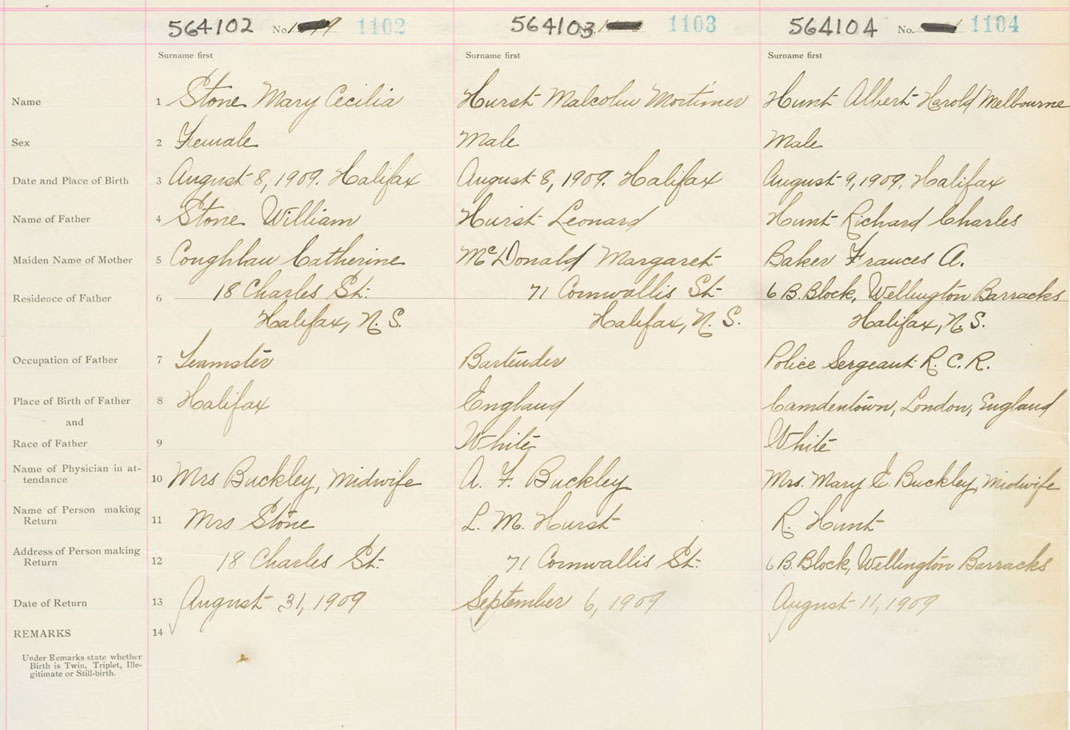 564102 No. 1102 564103 1103 564104 No. 1104
Surname first Surname first Surname first
Name 1 Stone Mary Cecilia Hurst Malcolm Mortimer Hunt Albert Harold Melbourne
Sex 2 Female Male Male
Date and Place of Birth 3 August 8, 1909. Halifax August 8, 1909. Halifax August 9, 1909. Halifax
Name of Father 4 Stone William Hurst Leonard Hunt Richard Charles
Maiden Name of Mother 5 Coughlan Catherine McDonald Margaret Baker Frances A.
Residence of Father 6 18 Charles St. 71 Cornwallis St. 6 B. Block, Wellington Barracks
Halifax, N.S. Halifax, N.S. Halifax, N.S.
Occupation of Father 7 Teamster Bartender Police Sergeant R.C.R.
Place of Birth of Father 8 Halifax England Camdentown, London, England
and
Race of Father 9 White White
Name of Physician in at-
tendance 10 Mrs Buckley, Midwife A. F. Buckley Mrs. Mary E. Buckley, Midwife
Name of Person making
Return 11 Mrs Stone L. M. Hurst R. Hunt
Address of Person making
Return 12 18 Charles St. 71 Cornwallis St. 6 B. Block, Wellington Barracks
Date of Return 13 August 31, 1909 September 6, 1909 August 11, 1909
REMARKS 14
Under Remarks state whether
Birth is Twin, Triplet, Ille-
gitimate or Still-birth.